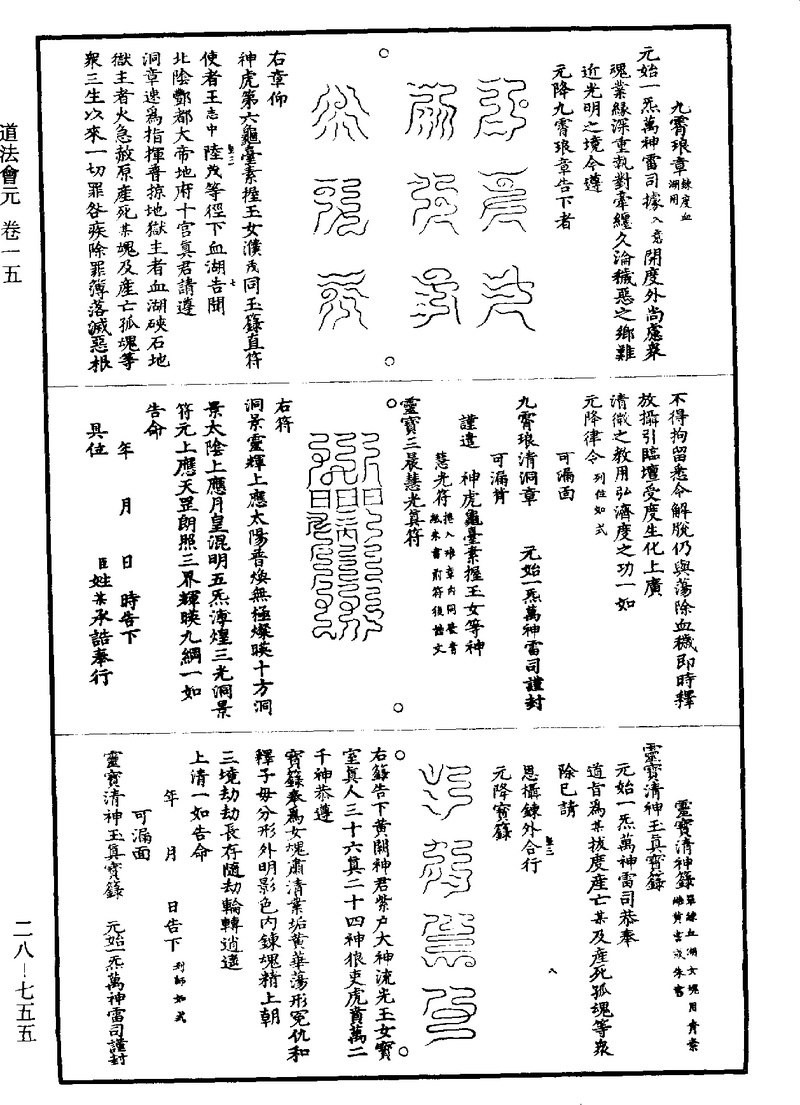 道法會元 卷一五
二八—七五五
九霄琅章鍊度血湖用
元始一炁萬神雷司據入意開度外尚慮衆
魂業緣深重執對牽纏久淪穢惡之鄉難
近光明之境今遵
元降九霄琅章告下者
右章仰
神虎第六龜臺素握玉女濮茂同玉籙直符
使者王志中陸茂等徑下血湖告聞
北陰酆都大帝地府十宮真君請遵
洞章速爲指揮普掠地獄主者血湖硤石地
獄主者火急赦原產死某魂及產亡孤魂等
衆三生以來一切罪咎疾除罪簿落滅惡根
不得拘留悉令解脫仍與蕩除血穢即時釋
放攝引臨壇受度生化上廣
清微之教用弘濟度之功一如
元降律令列位如式
可漏面
九霄琅清洞章 元始一炁萬神雷司謹封
可漏背
謹遣 神虎龜臺素握玉女等神
慧光符
靈寶三晨慧光真符
右符
洞景靈輝上應太陽普煥無極燦暎十方洞
景太陰上應月皇混明五炁漙煌三光洞景
符元上應天罡朗照三界輝暎九綱一如
告命
年 月 日時告下
具位 臣姓某承誥奉行
靈寶清神籙
靈寶清神玉真寶籙
元始一炁萬神雷司恭奉
道旨爲某拔度產亡某及產死孤魂等衆
除已請
恩攝鍊外合行
元降寶籙
右籙告下黃闕神君紫戶大神流光玉女寶
室真人三十六真二十四神狼吏虎賁萬二
千神恭遵
寶籙奉爲女魂肅清業垢黃華蕩形冤仇和
釋子母分形外明影色內鍊魂精上朝
三境劫劫長存隨劫輪轉逍遙
上清一如告命
年 月 日告下列師如式
可漏面
靈寶清神玉真寶籙 元始一炁萬神雷司謹封